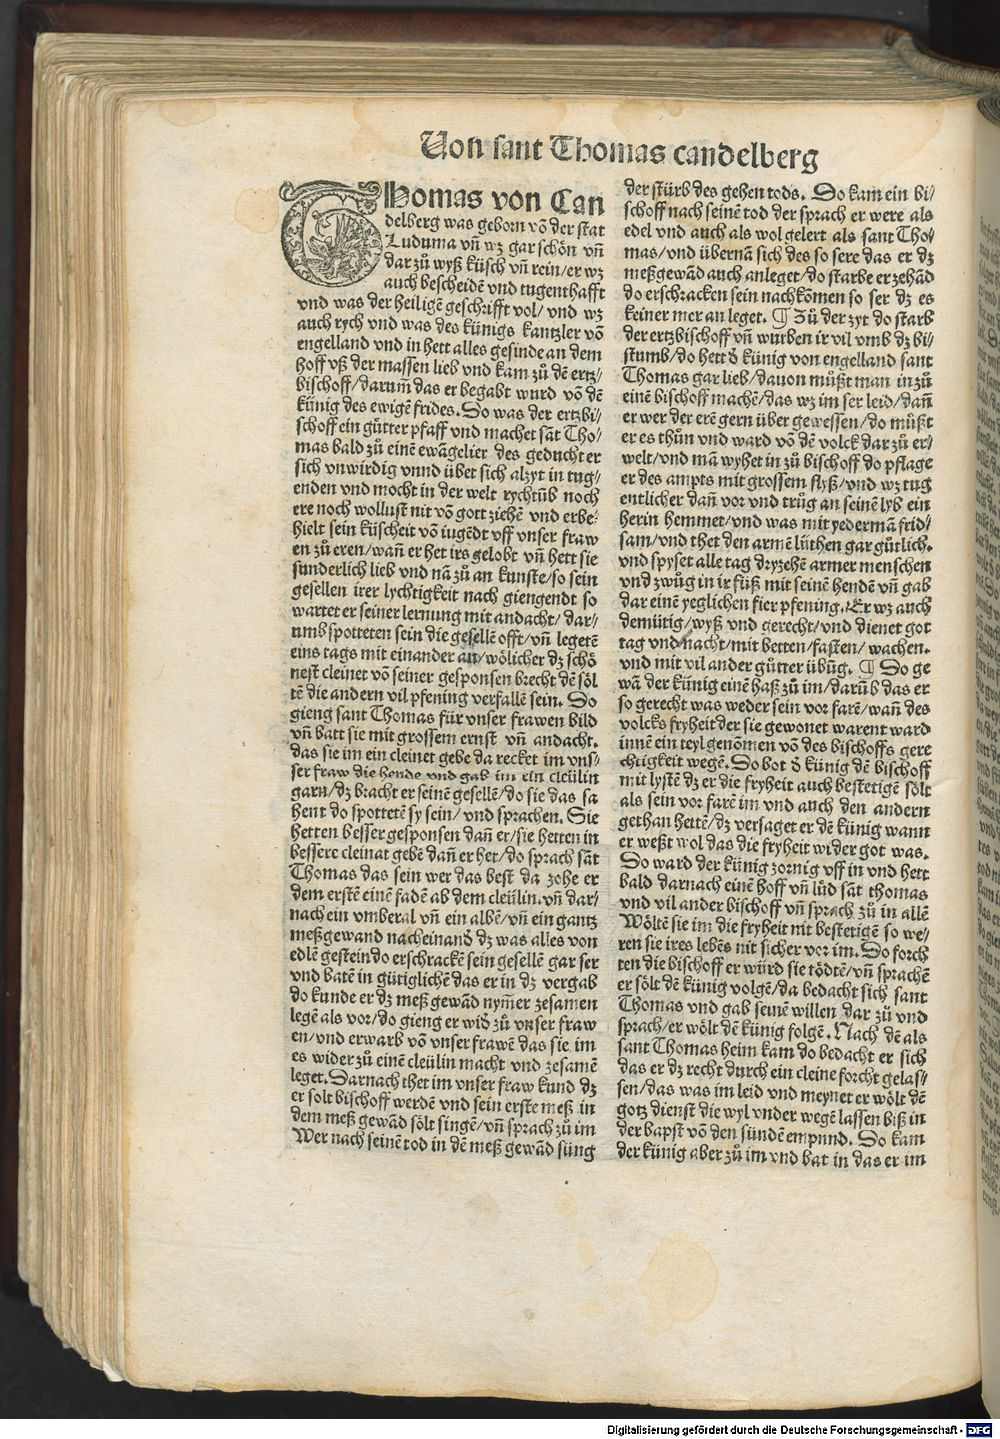 Von sant Thomas candelberg
THomas von Can
delberg was geborn vō der stat
Luduma vn̄ wz gar schön vn̄
dar zů wyß küsch vn̄ rein/er wz
auch bescheidē vnd tugenthafft
vnd was der heiligē geschrifft vol/ vnd wz
auch rych vnd was des künigs kantzler vō
engelland vnd in hett alles gesinde an dem
hoff vß der massen lieb vnd kam zů dē ertz/
bischoff/darum̄ das er begabt wurd vō dē
künig des ewigē frides. So was der ertzbi/
schoff ein gůtter pfaff vnd machet sāt Tho/
mas bald zů einē ewāgelier des geducht er
sich vnwirdig vnnd übet sich alzyt in tug/
enden vnd mocht in der welt rychtūb noch
ere noch wollust nit vō gott ziehē vnd erbe/
hielt sein küscheit vō iugēdt vff vnser fraw
en zů eren/wan̄ er het irs gelobt vn̄ hett sie
sunderlich lieb vnd nā zů an kunste/so sein
gesellen irer lychtigkeit nach giengendt so
wartet er seiner lernung mit andacht/ dar/
umb spotteten sein die gesellē offt/vn̄ legetē
eins tags mit einander an/wölicher dz schö
nest cleinet vō seiner gesponsen brecht dē söl
tē die andern vil pfening verfallē sein. So
gieng sant Thomas für vnser frawen bild
vn̄ batt sie mit grossem ernst vn̄ andacht.
das sie im ein cleinet gebe da recket im vns/
ser fraw die hende vnd gab im ein cleülin
garn/dz bracht er seinē gesellē/do sie das sa
hent do spottetē sy sein/ vnd sprachen. Sie
hetten besser gesponsen dan̄ er/sie hetten in
bessere cleinat gebē dan̄ er het/do sprach sāt
Thomas das sein wer das best da zohe er
dem erstē einē fadē ab dem cleülin.vn̄ dar/
nach ein vmberal vn̄ ein albē/vn̄ ein gantz
meßgewand nacheinand̄ dz was alles von
edlē gestein do erschrackē sein gesellē gar ser
vnd batē in gütiglichē das er in dz vergab
do kunde er dz meß gewād nym̄er zesamen
legē als vor/do gieng er wid̄ zů vnser fraw
en/vnd erwarb vō vnser frawē das sie im
es wider zů einē cleülin macht vnd zesamē
leget. Darnach thet im vnser fraw kund dz
er solt bischoff werdē vnd sein erste meß in
dem meß gewād sölt singē/vn̄ sprach zů im
Wer nach seinē tod in dē meß gewād süng
der stürb des gehen tods. Do kam ein bi/
schoff nach seinē tod der sprach er were als
edel vnd auch als wol gelert als sant Tho/
mas/vnd übernā sich des so sere das er dz
meßgewād auch anleget/do starbe er zehād
do erschracken sein nachkōmen so ser dz es
keiner mer an leget. ¶ Zů der zyt do starb
der ertzbischoff vn̄ wurben ir vil vmb dz bi/
stumb/do hett d̄ künig von engelland sant
Thomas gar lieb/dauon můßt man in zů
einē bischoff machē/das wz im ser leid/dan̄
er wer der erē gern über gewessen/do můßt
er es thůn vnd ward vō dē volck dar zů er/
welt/vnd mā wyhet in zů bischoff do pflage
er des ampts mit grossem flyß/vnd wz tug
entlicher dan̄ vor vnd trůg an seinē lyb ein
herin hemmet/vnd was mit yedermā frid/
sam/vnd thet den armē lüthen gar gůtlich.
vnd spyset alle tag dryzehē armer menschen
vnd zwůg in ir füß mit seinē hendē vn̄ gab
dar einē yeglichen fier pfening. Er wz auch
demütig/wyß vnd gerecht/vnd dienet got
tag vnd nacht/mit betten/fasten/ wachen.
vnd mit vil ander gůtter übūg. ¶ So ge
wā der künig einē haß zů im/darūb das er
so gerecht was weder sein vor farē/wan̄ des
volcks fryheit der sie gewonet warent ward
innē ein teyl genōmen vō des bischoffs gere
chtigkeit wegē. So bot d̄ künig dē bischoff
mit lystē dz er die fryheit auch bestetigē sölt
als sein vor farē im vnd auch den andern
gethan hettē/dz versaget er dē künig wann
er weßt wol das die fryheit wider got was.
So ward der künig zornig vff in vnd hett
bald darnach einē hoff vn̄ lůd sāt thomas
vnd vil ander bischoff vn̄ sprach zů in allē
Wöltē sie im die fryheit nit bestetigē so we/
ren sie ires lebēs nit sicher vor im. So forch
ten die bischoff er würd sie tödtē/vn̄ sprachē
er sölt dē künig volgē/da bedacht sich sant
Thomas vnd gab seinē willen dar zů vnd
sprach/er wölt dē künig folgē. Nach dē als
sant Thomas heim kam do bedacht er sich
das er dz recht durch ein cleine forcht gelas/
sen/das was im leid vnd meynet er wölt dē
gotz dienst die wyl vnder wegē lassen biß in
der bapst vō den sündē empnnd. So kam
der künig aber zů im vnd bat in das er im
Digitalisierung gefördert durch die Deutsche Forschungsgemeinschaft - DFG